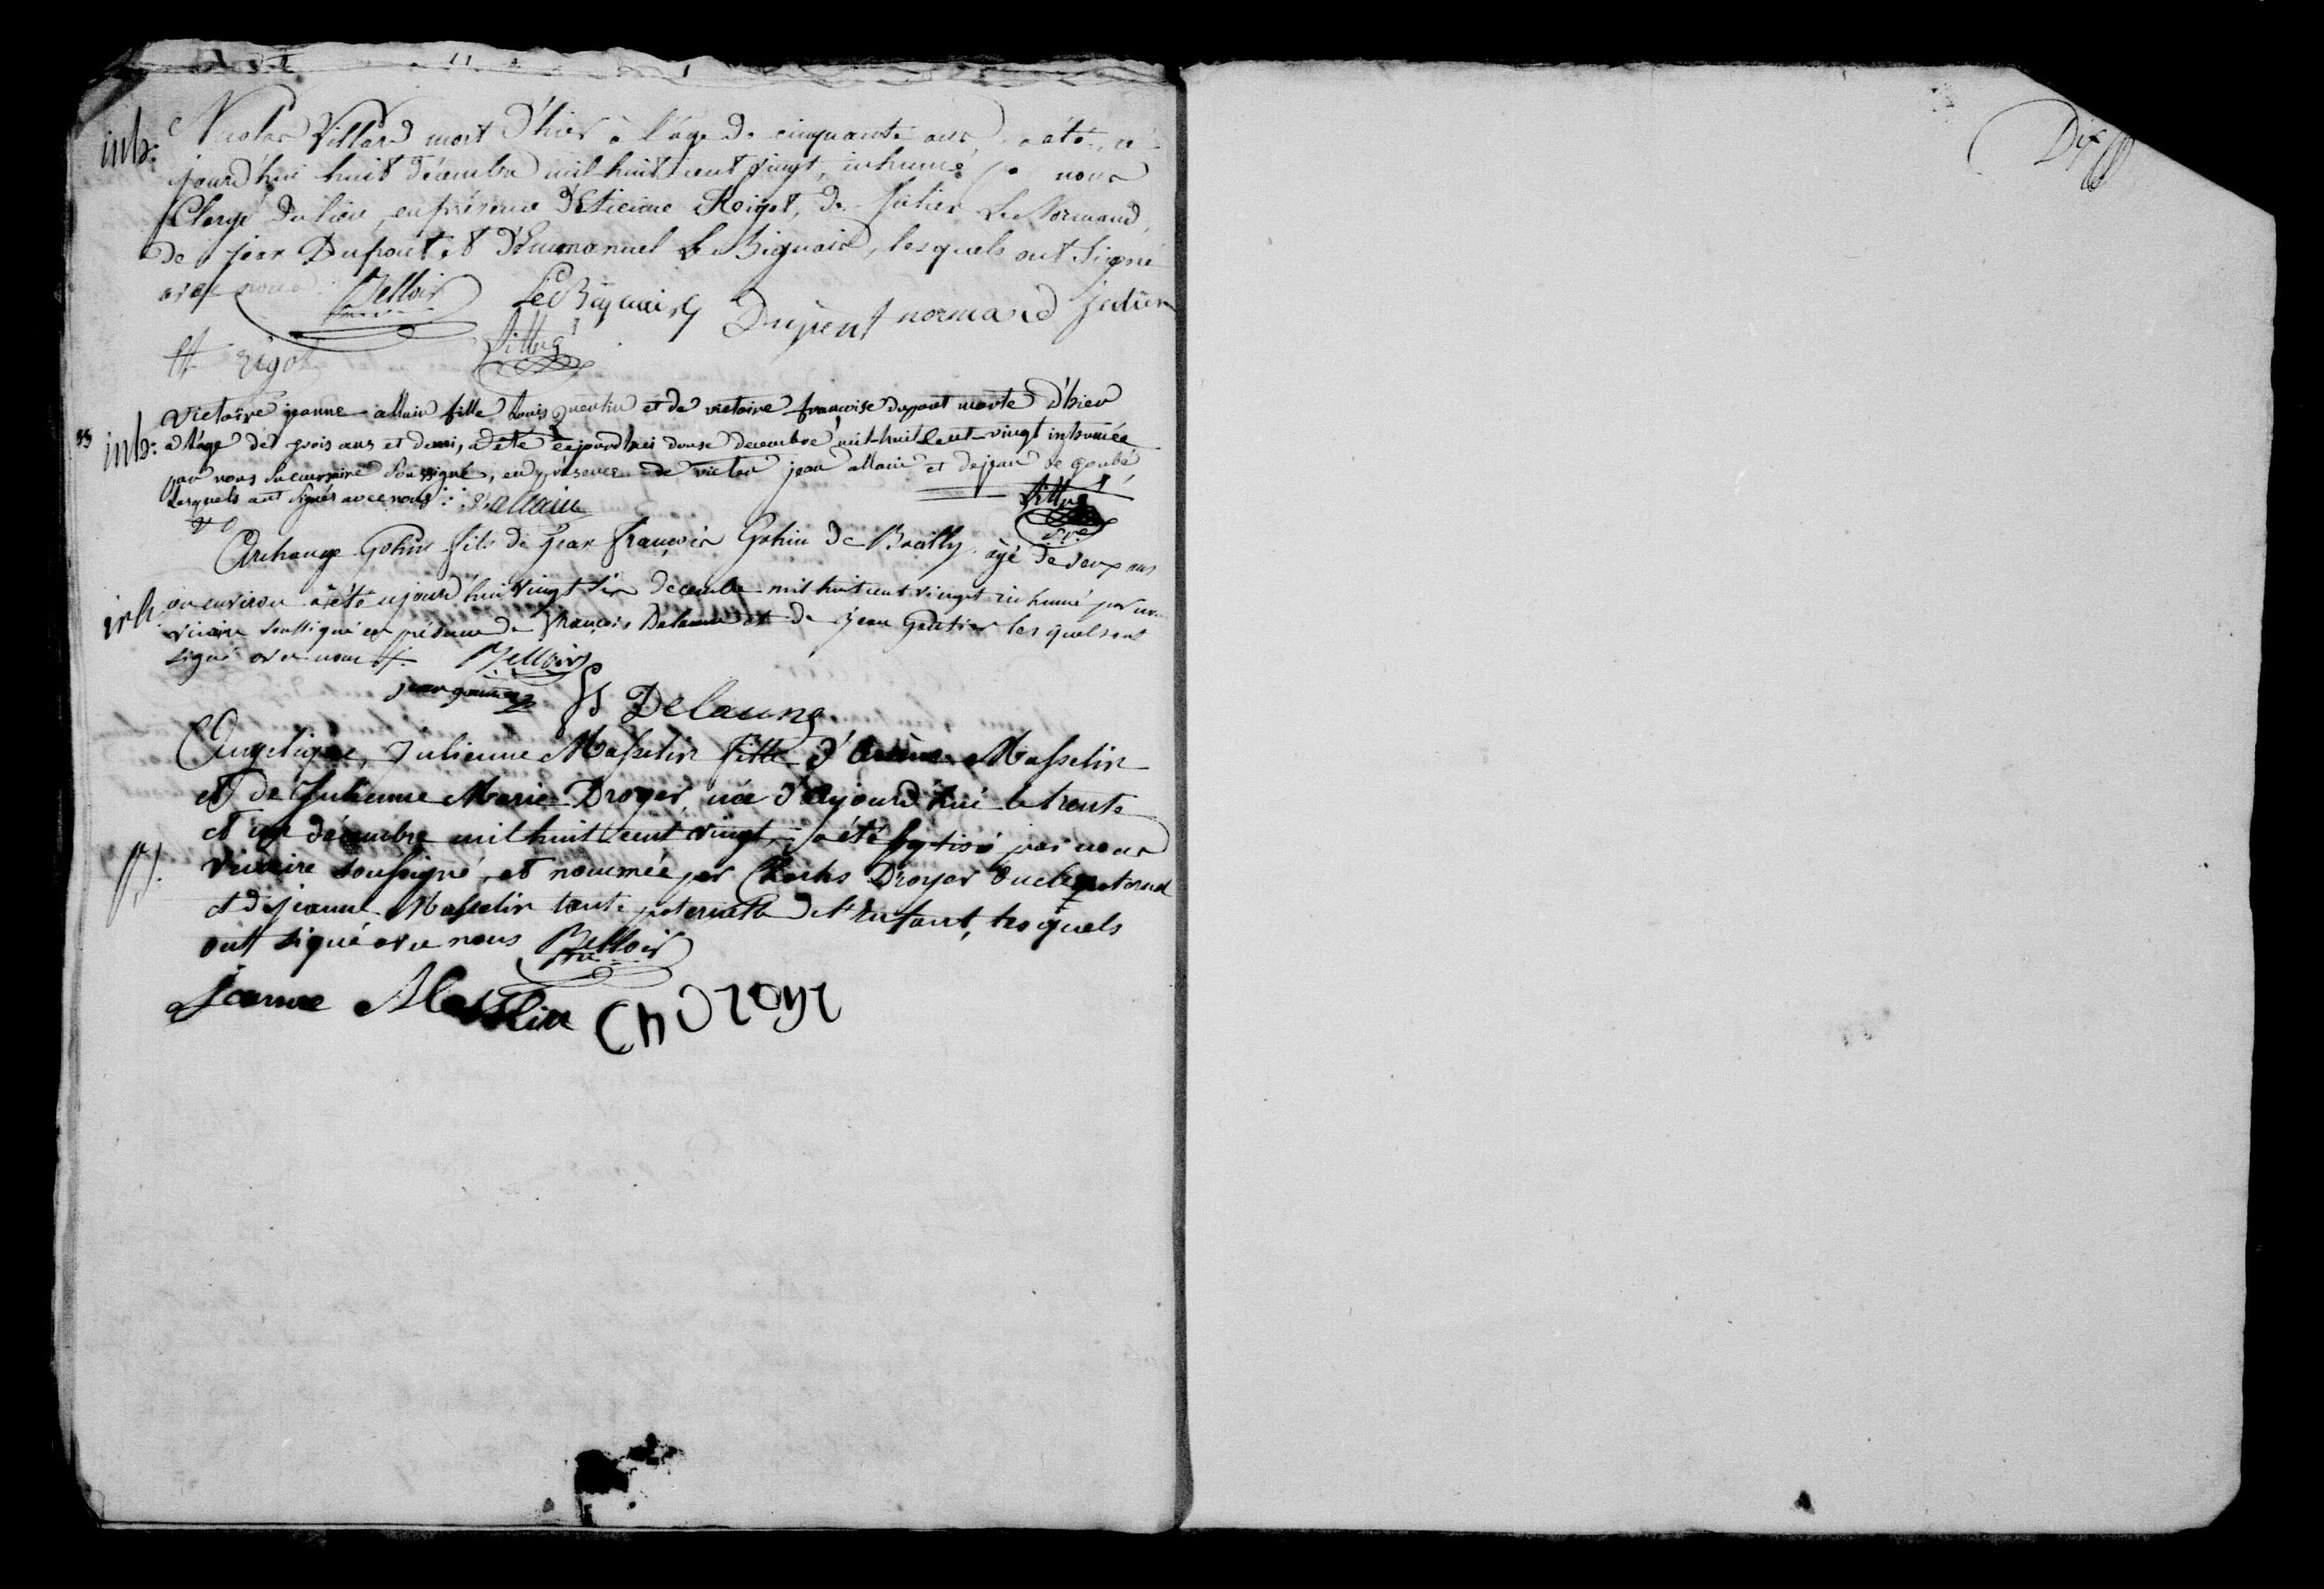 inh: Nicolas Villard mort d'hier à l'age de cinquante ans, a été, ce
jourd'hui huit décembre mil huit cent vingt, inhumé nous
Clergé du lieu, en présence d'Etienne Roigot, de Julien Le Normand,
de jean Dupont et d'Emmanuel Le Biguais, lesquels ont signé
avec nous. Belloir LeBiguais Dupent normand julien
rigot
inh: victoire jeanne allain fille Louis quentin et de victoire françoise dupont morte d'hier
a l'âge de trois ans et demi, a été cejourdhui douse decembre mil-huit Cent-vingt inhumée
par nous Succursaire Soussigné, en présence de victor jean allain et de jean
Lesquels ont Signés avec nous: allain
inh. Archange Gohin fils de Jean François Gohin de Brailly, agé de deux ans
ou environ a été ajourd'hui vingt six decembre mil huit cent vinget inhumé par nous
vicaire soussigné en présence de François Delaune et de Jean Gautier les quels ont
signé avec nous Belloir
jean gautier
Delaune
Angelique, Julienne Masselin fille d' Masselin
et de Julienne Marie Droyer, née d'aujourd'hui le trente
B. et un décembre mil huit cent vingt, a été bptisé par nous
vicaire soussigné, et nommée par Charles Droyer oncle paternel
et de jeanne Masselin tante paternelle de l'enfant, lesquels
ont signé avec nous Belloir
jeanne Masslin Ch Droyr
Dix